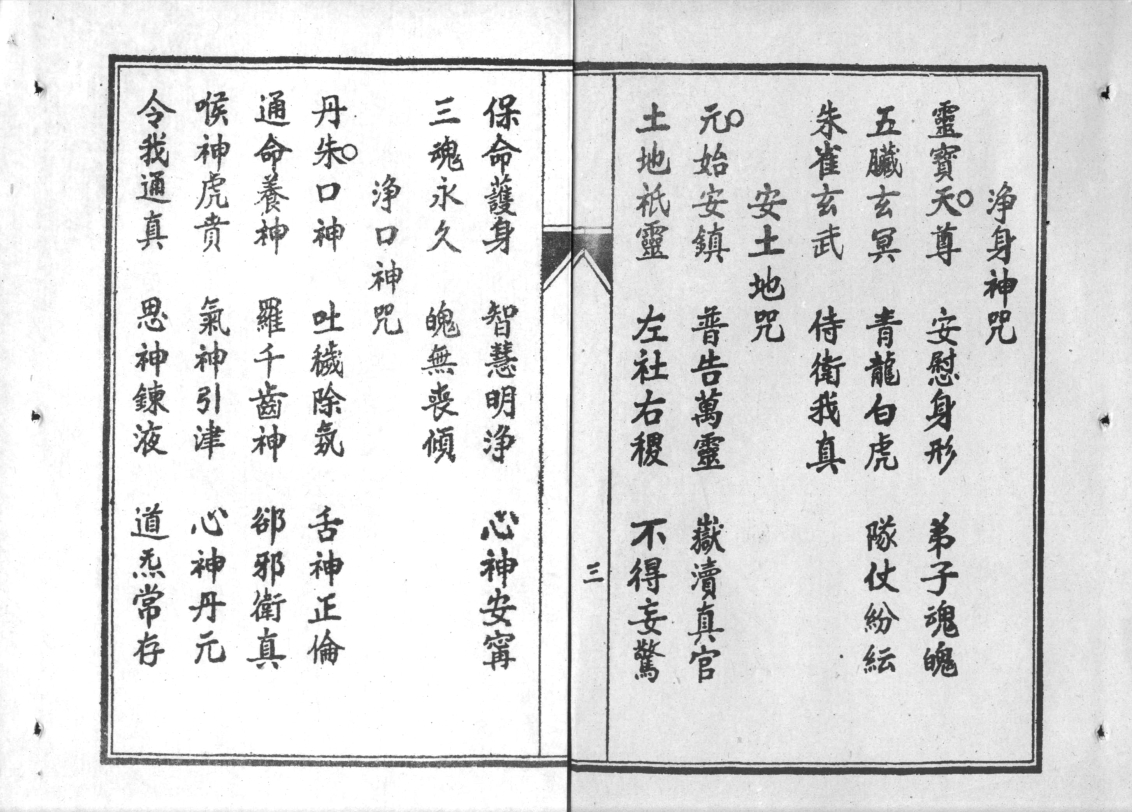 淨身神咒
靈寶天尊 安慰身形 弟子魂魄
五臟玄冥 青龍白虎 隊仗紛紜
朱雀玄武 侍衛我真
安土地咒
元始安鎮 普告萬靈 嶽瀆真官
土地祇靈 左社右稷 不得妄驚
三
保命護身 智慧明淨 心神安寗
三魂永久 魄無喪傾
淨口神咒
丹朱口神 吐穢除氛 舌神正倫
通命養神 羅千齒神 郤邪衛真
喉神虎賁 氣神引津 心神丹元
令我通真 思神鍊液 道炁常存